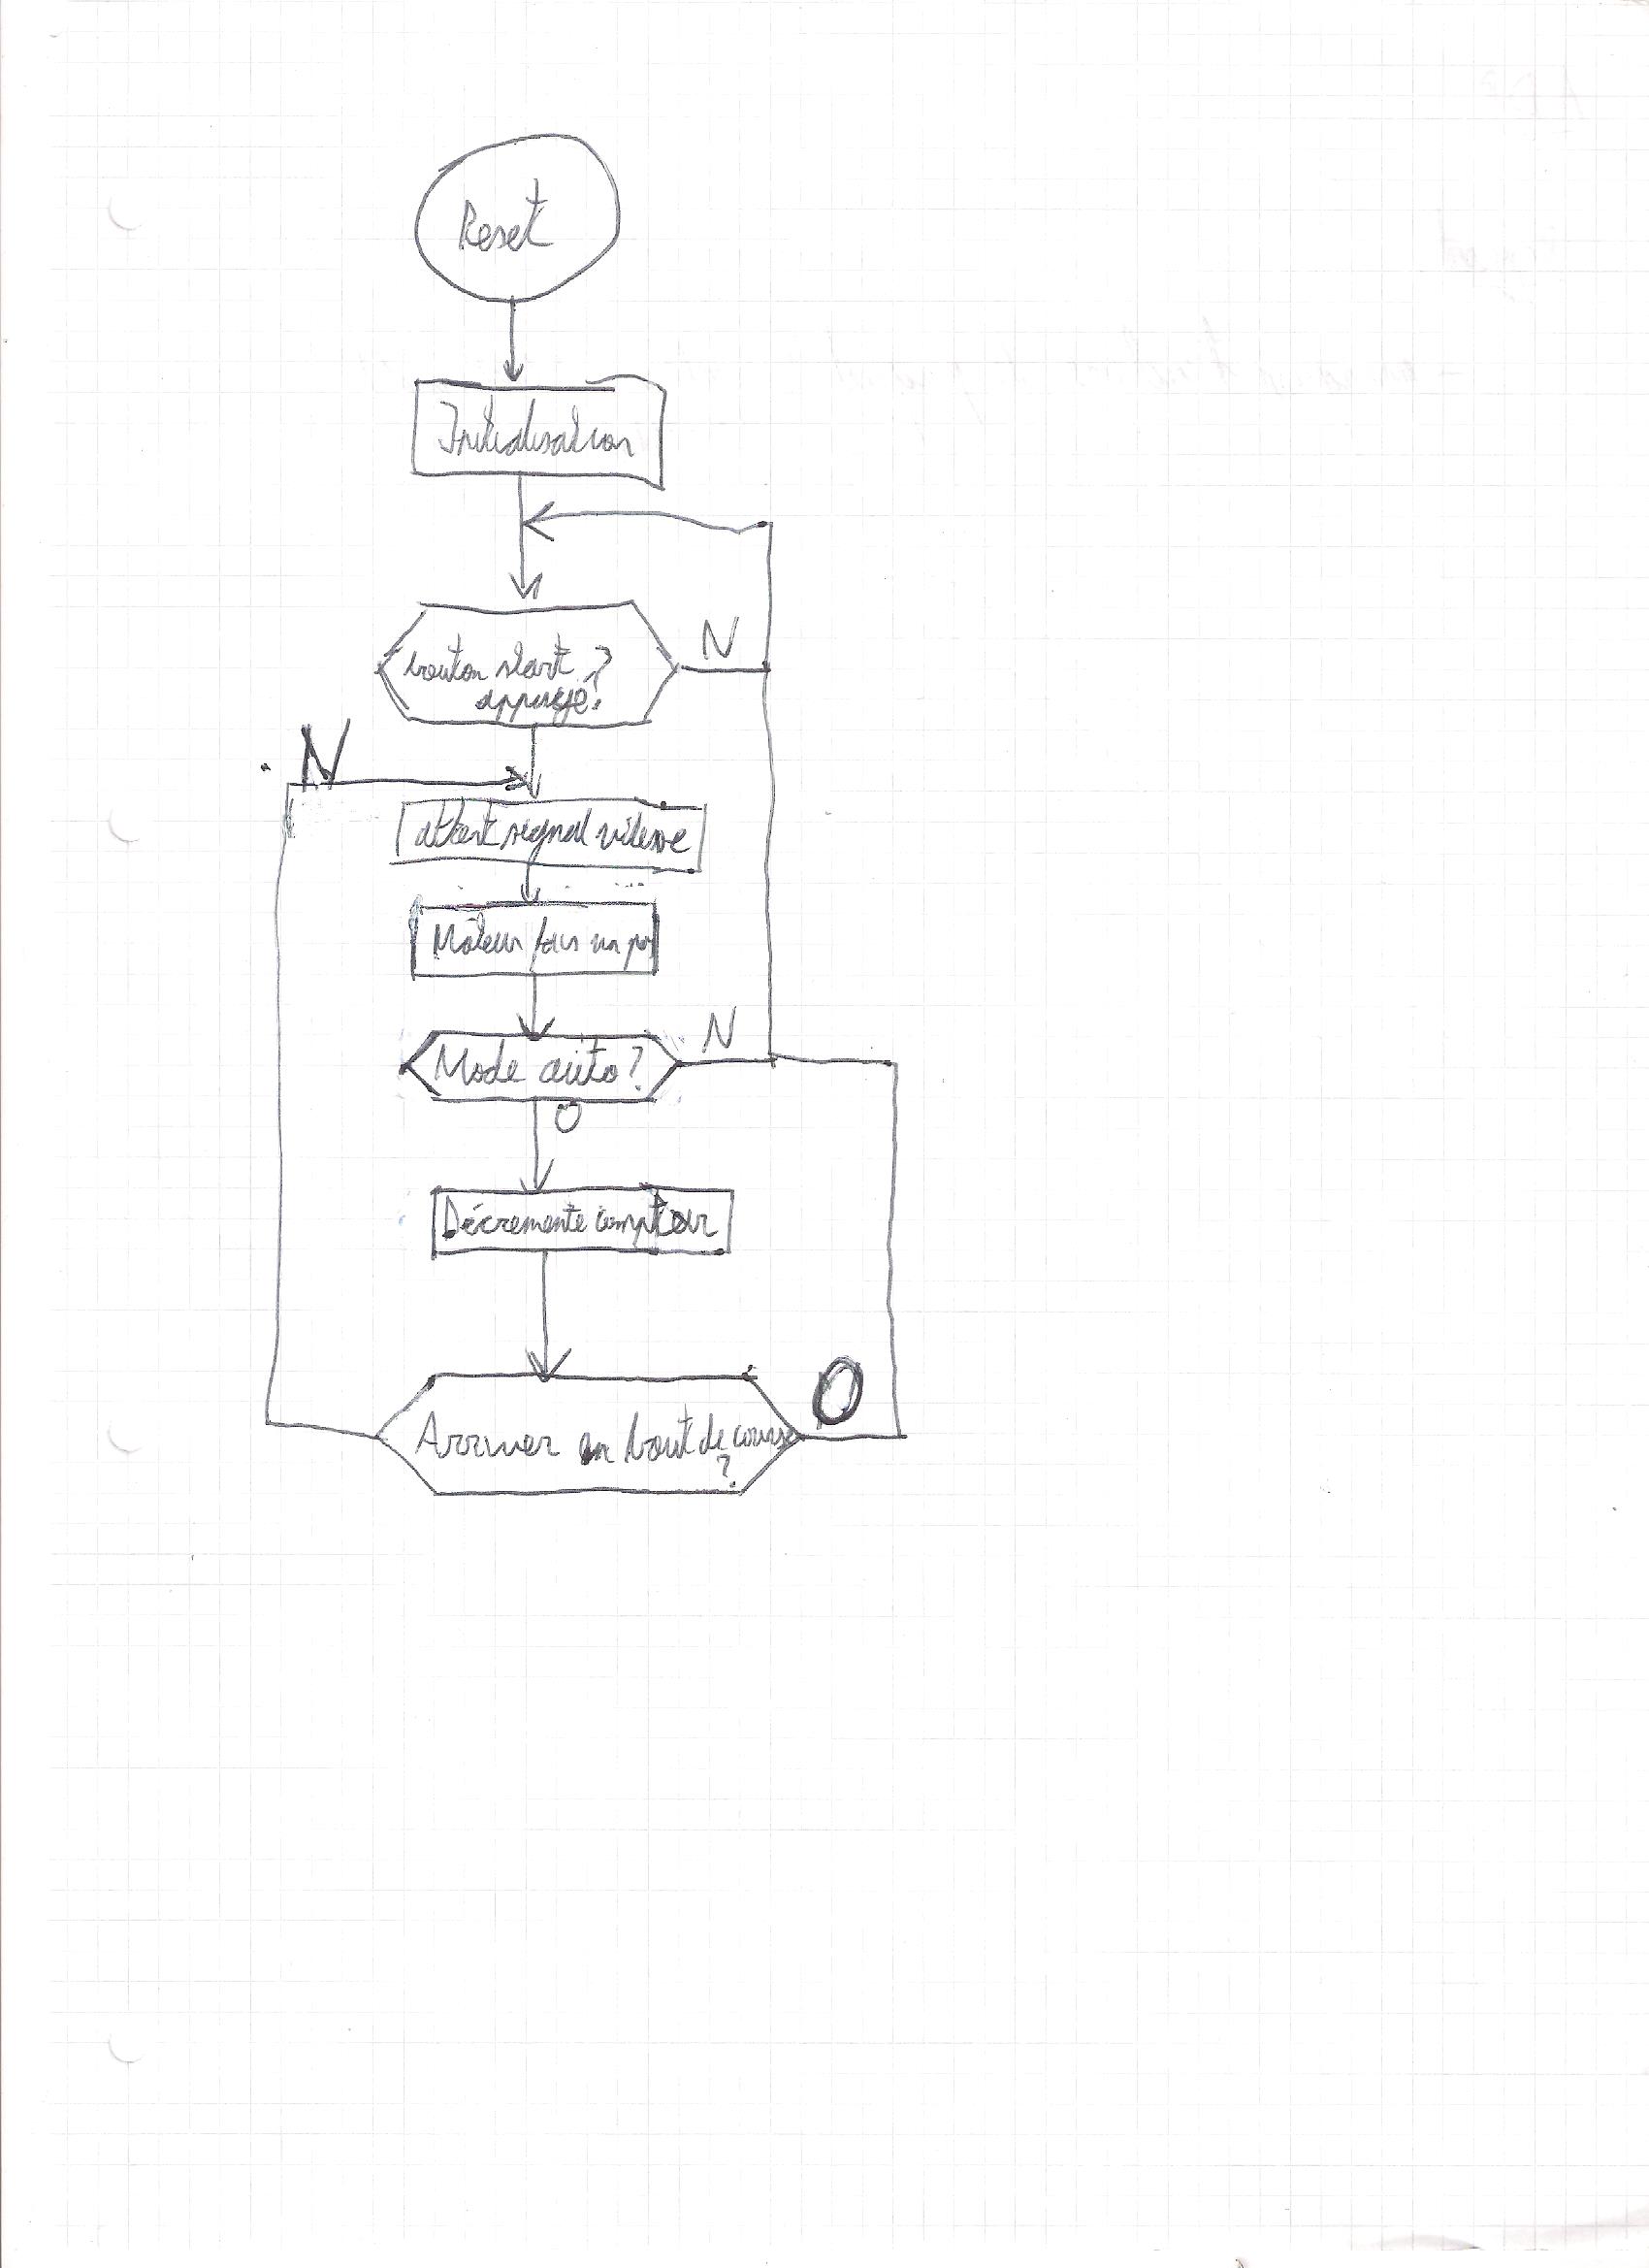 Reset
Initialisation
bouton start ?
appuyé?
N
N
attent signal vitesse
Moteur fais un pas
Mode auto?
N
O
Décremente compteur
Arriver en bout de course
?
O